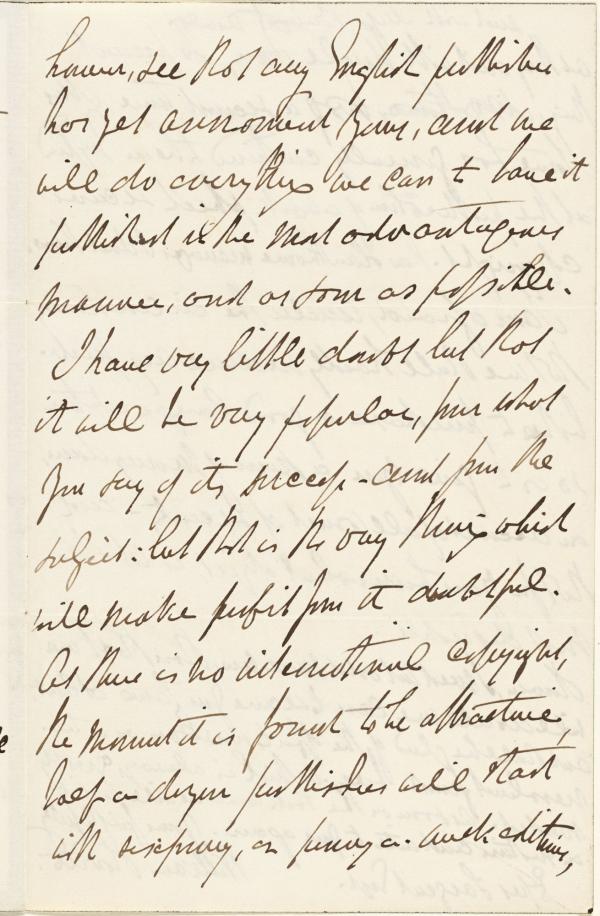 however, see that any English publisher
has yet announced yours, and we
will do everything we can to have it
published in the most advantageous
manner, and as soon as possible.
I have very little doubt but that
it will be very popular, from what
you say of its success - and from the
subject: but that is the very thing which
will make profit from it doubtful.
As there is no international copyright,
the moment it is found to be attractive,
half a dozen publishers will start
with sixpenny, or penny a-week editions,